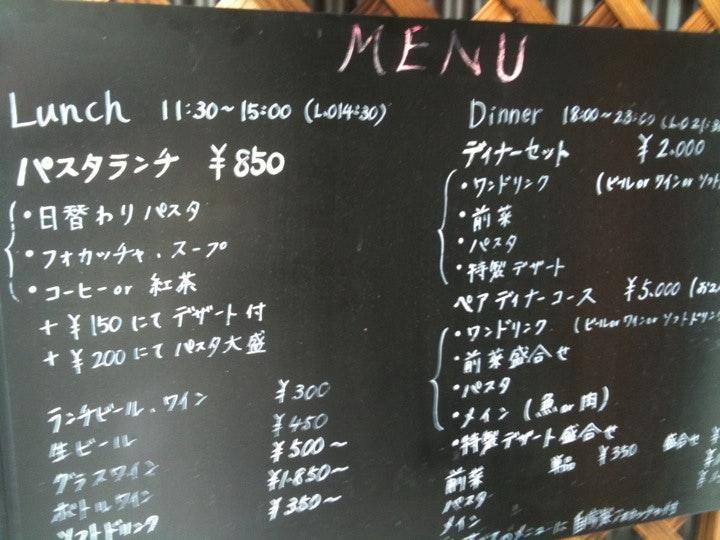 MENU
Lunch 11:30～15:00 (L.O14:30)
パスタランチ ¥850
・日替わりパスタ
・フォカッチャ、スープ
・コーヒー or 紅茶
+ ¥150にて デザート付
+ ¥200にて パスタ大盛
ランチビール、ワイン ¥300
生ビール ¥450
グラスワイン ¥500～
ボトルワイン ¥1.850～
ソフトドリンク ¥350～
Dinner 18:00～23:00 (L.O 21:30
ディナーセット ¥2.000
・ワンドリンク (ビール or ワイン or ソフト
・前菜
・パスタ
・特製デザート
ペアディナーコース ¥5.000
・ワンドリンク (ビール or ワイン or ソフトドリン
・前菜盛合せ
・パスタ
・メイン (魚 or 肉)
・特製デザート盛合せ
前菜 単品 ¥350 盛合せ ¥
パスタ
メイン
メニューに 自家製フォカッチャ付